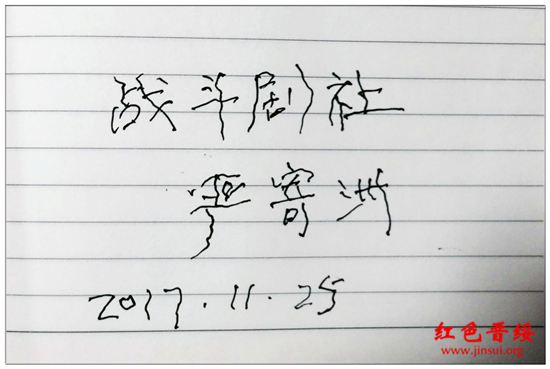 战斗剧社
严寄洲
2017.11.25
红色晋绥
www.jinsui.org